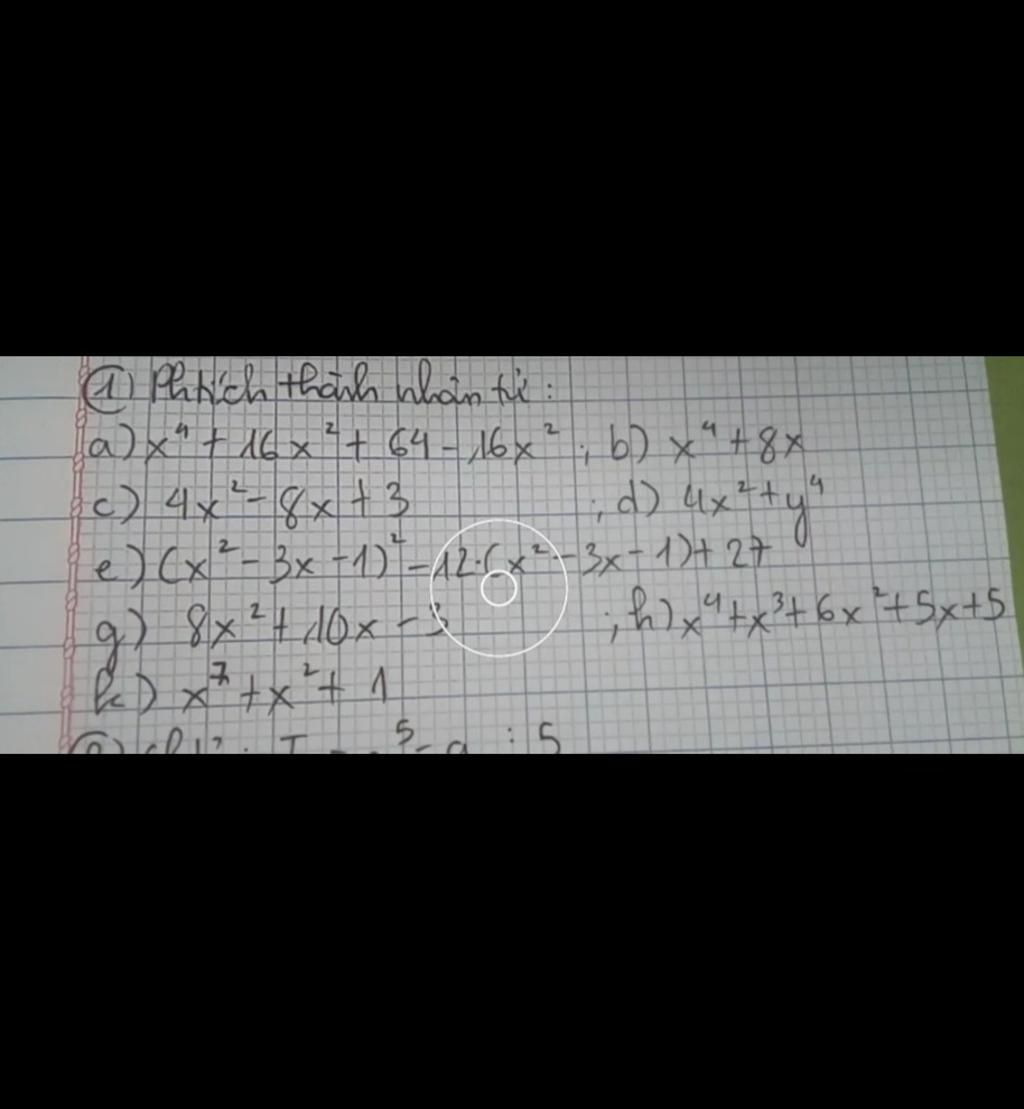 ① Phtích thành nhân tử:
a) x⁴ + 16x² + 64 - 16x² ; b) x⁴ + 8x
c) 4x² - 8x + 3 ; d) 4x² + y⁴
e) (x² - 3x - 1)² - 12.(x² - 3x - 1) + 27
g) 8x² + 10x - 3 ; h) x⁴ + x³ + 6x² + 5x + 5
k) x⁷ + x² + 1